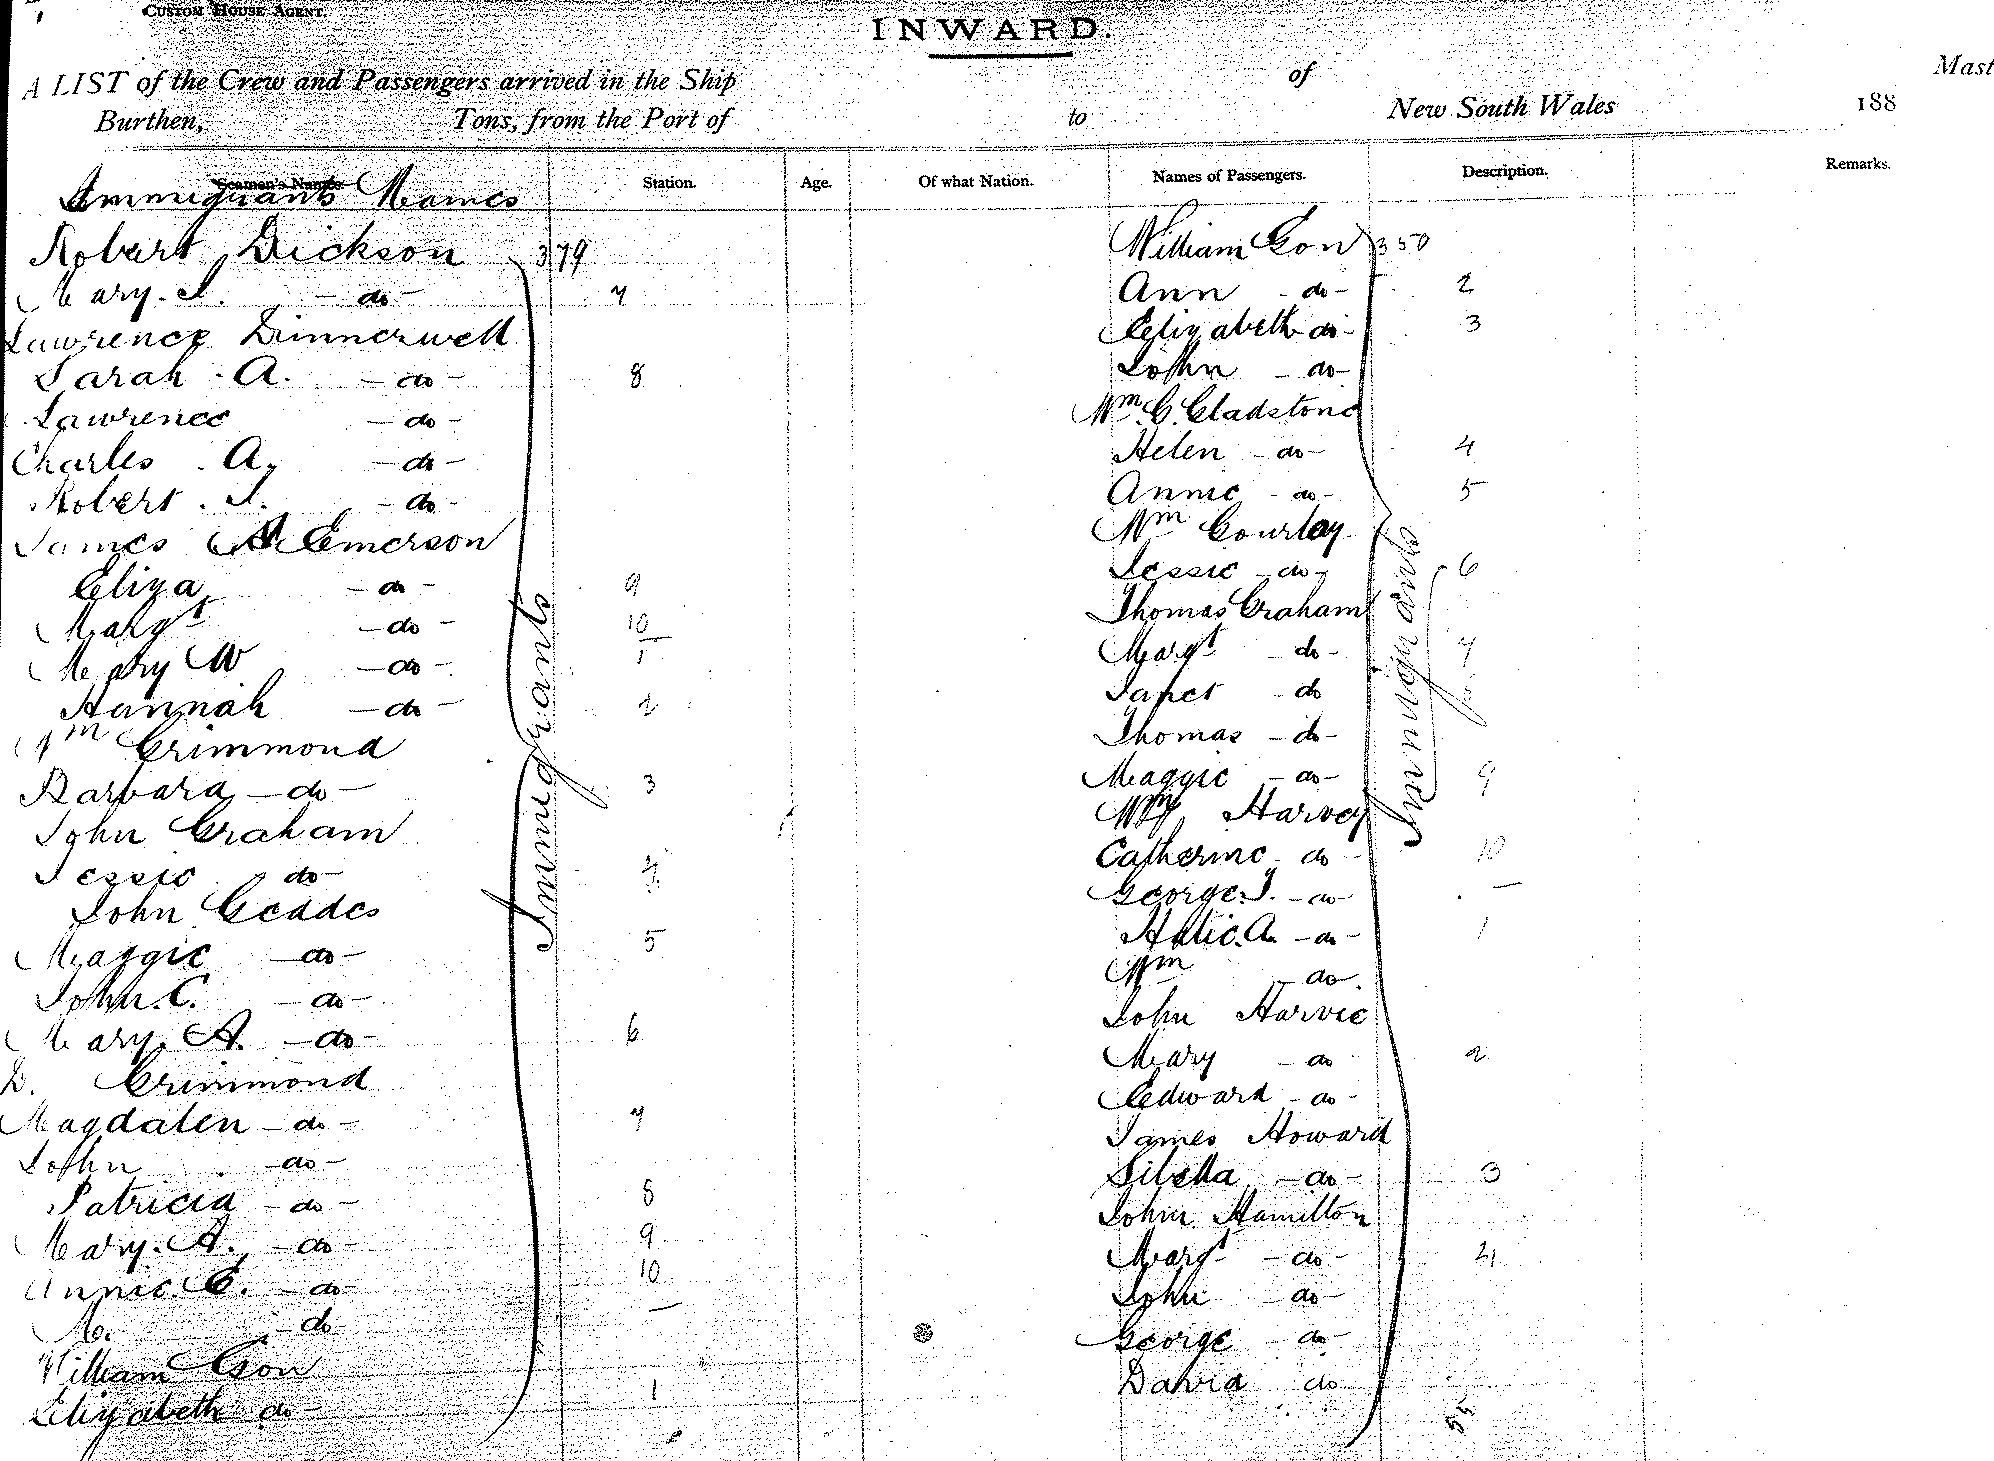 CUSTOM HOUSE AGENT.
INWARD.
A LIST of the Crew and Passengers arrived in the Ship of Mast
Burthen, Tons, from the Port of to New South Wales 188
Seamen's Names. Station. Age. Of what Nation. Names of Passengers. Description. Remarks.
Immigrants Names
Robert Dickson 379
Mary. J. - do - 7
Lawrence Dinnerwell
Sarah . A. - do - 8
Lawrence - do -
Charles . A. - do -
Robert . J. - do -
James A Emerson
Eliza - do - 9
Margt - do - 10
Mary W - do - 1
Hannah - do - 2
Wm Crimmond
Barbara - do - 3
John Graham
Jessie do - 4
John Geddes
Maggie - do - 5
John. C. - do -
Mary. A. - do - 6
D. Crimmond
Magdalen - do - 7
John - do -
Patricia - do - 8
Mary. A. - do - 9
Annie. C. - do 10
M. - do
William Gow
Elizabeth do - 1
Immigrants
William Gow 350
Ann - do - 2
Elizabeth do - 3
John - do -
Wm. G. Gladstone
Helen - do - 4
Annie - do - 5
Wm Gourlay
Jessie - do - 6
Thomas Graham
Margt - do - 7
Janet - do
Thomas - do -
Maggie - do - 9
Wm Harvey
Catherine - do - 10
George. J. - do -
Hatie. A. - do - 1
Wm - do.
John Harvie
Mary - do 2
Edward - do -
James Howard
Sibella - do - 3
John Hamilton
Margt - do - 4
John - do -
George - do -
David do
Immigrants
55